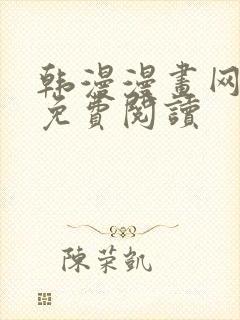 韩漫漫畫网
免費閱讀
陳荣凱